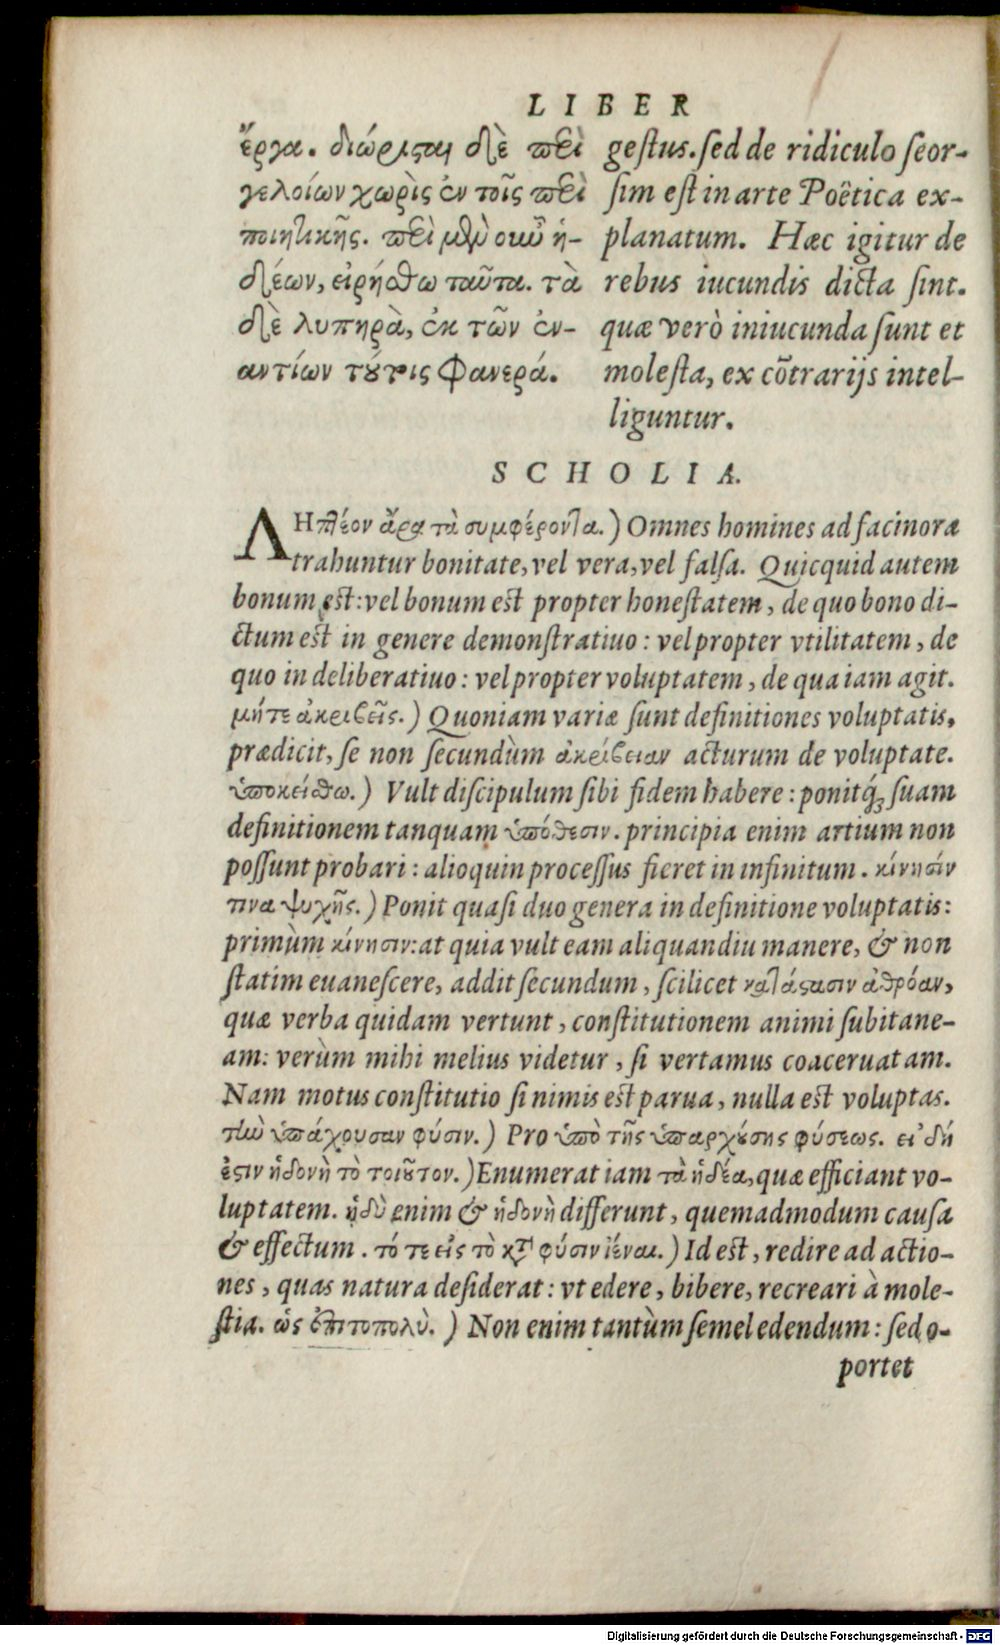 LIBER
ἔργα. διώρισται δὲ περὶ
γελοίων χωρὶς ἐν τοῖς περὶ
ποιητικῆς. περὶ μὲν οὖν ἡ-
δέων, εἰρήσθω ταῦτα. τὰ
δὲ λυπηρὰ, ἐκ τῶν ἐν-
αντίων τούτοις φανερά.
geſtus. ſed de ridiculo ſeor-
ſim eſt in arte Poëtica ex-
planatum. Hæc igitur de
rebus iucundis dicta ſint.
quæ verò iniucunda ſunt et
moleſta, ex cōtrarijs intel-
liguntur.
SCHOLIA.
ΛΗπτέον ἄρα τὰ συμφέροντα.) Omnes homines ad facinora
trahuntur bonitate, vel vera, vel falſa. Quicquid autem
bonum eſt: vel bonum eſt propter honeſtatem, de quo bono di-
ctum eſt in genere demonſtratiuo: vel propter vtilitatem, de
quo in deliberatiuo: vel propter voluptatem, de qua iam agit.
μήτε ἀκριβεῖς.) Quoniam variæ ſunt definitiones voluptatis,
prædicit, ſe non ſecundùm ἀκρίβειαν acturum de voluptate.
ὑποκείσθω.) Vult diſcipulum ſibi fidem habere: ponitq́ꝫ ſuam
definitionem tanquam ὑπόθεσιν. principia enim artium non
poſſunt probari: alioquin proceſſus fieret in infinitum. κίνησίν
τινα ψυχῆς.) Ponit quaſi duo genera in definitione voluptatis:
primùm κίνησιν: at quia vult eam aliquandiu manere, & non
ſtatim euaneſcere, addit ſecundum, ſcilicet κατάστασιν ἀθρόαν,
quæ verba quidam vertunt, conſtitutionem animi ſubitane-
am: verùm mihi melius videtur, ſi vertamus coaceruatam.
Nam motus conſtitutio ſi nimis eſt parua, nulla eſt voluptas.
τὴν ὑπάχουσαν φύσιν.) Pro ὑπὸ τῆς ὑπαρχούσης φύσεως. εἰ δή
ἐστιν ἡδονὴ τὸ τοιοῦτον.) Enumerat iam τὰ ἡδέα, quæ efficiant vo-
luptatem. ἡδὺ enim & ἡδονὴ differunt, quemadmodum cauſa
& effectum. τό τε εἰς τὸ κτ̀ φύσιν ἰέναι.) Id eſt, redire ad actio-
nes, quas natura deſiderat: vt edere, bibere, recreari à mole-
ſtia. ὡς ἐπιτοπολὺ.) Non enim tantùm ſemel edendum: ſed o-
portet
Digitalisierung gefördert durch die Deutsche Forschungsgemeinschaft - DFG